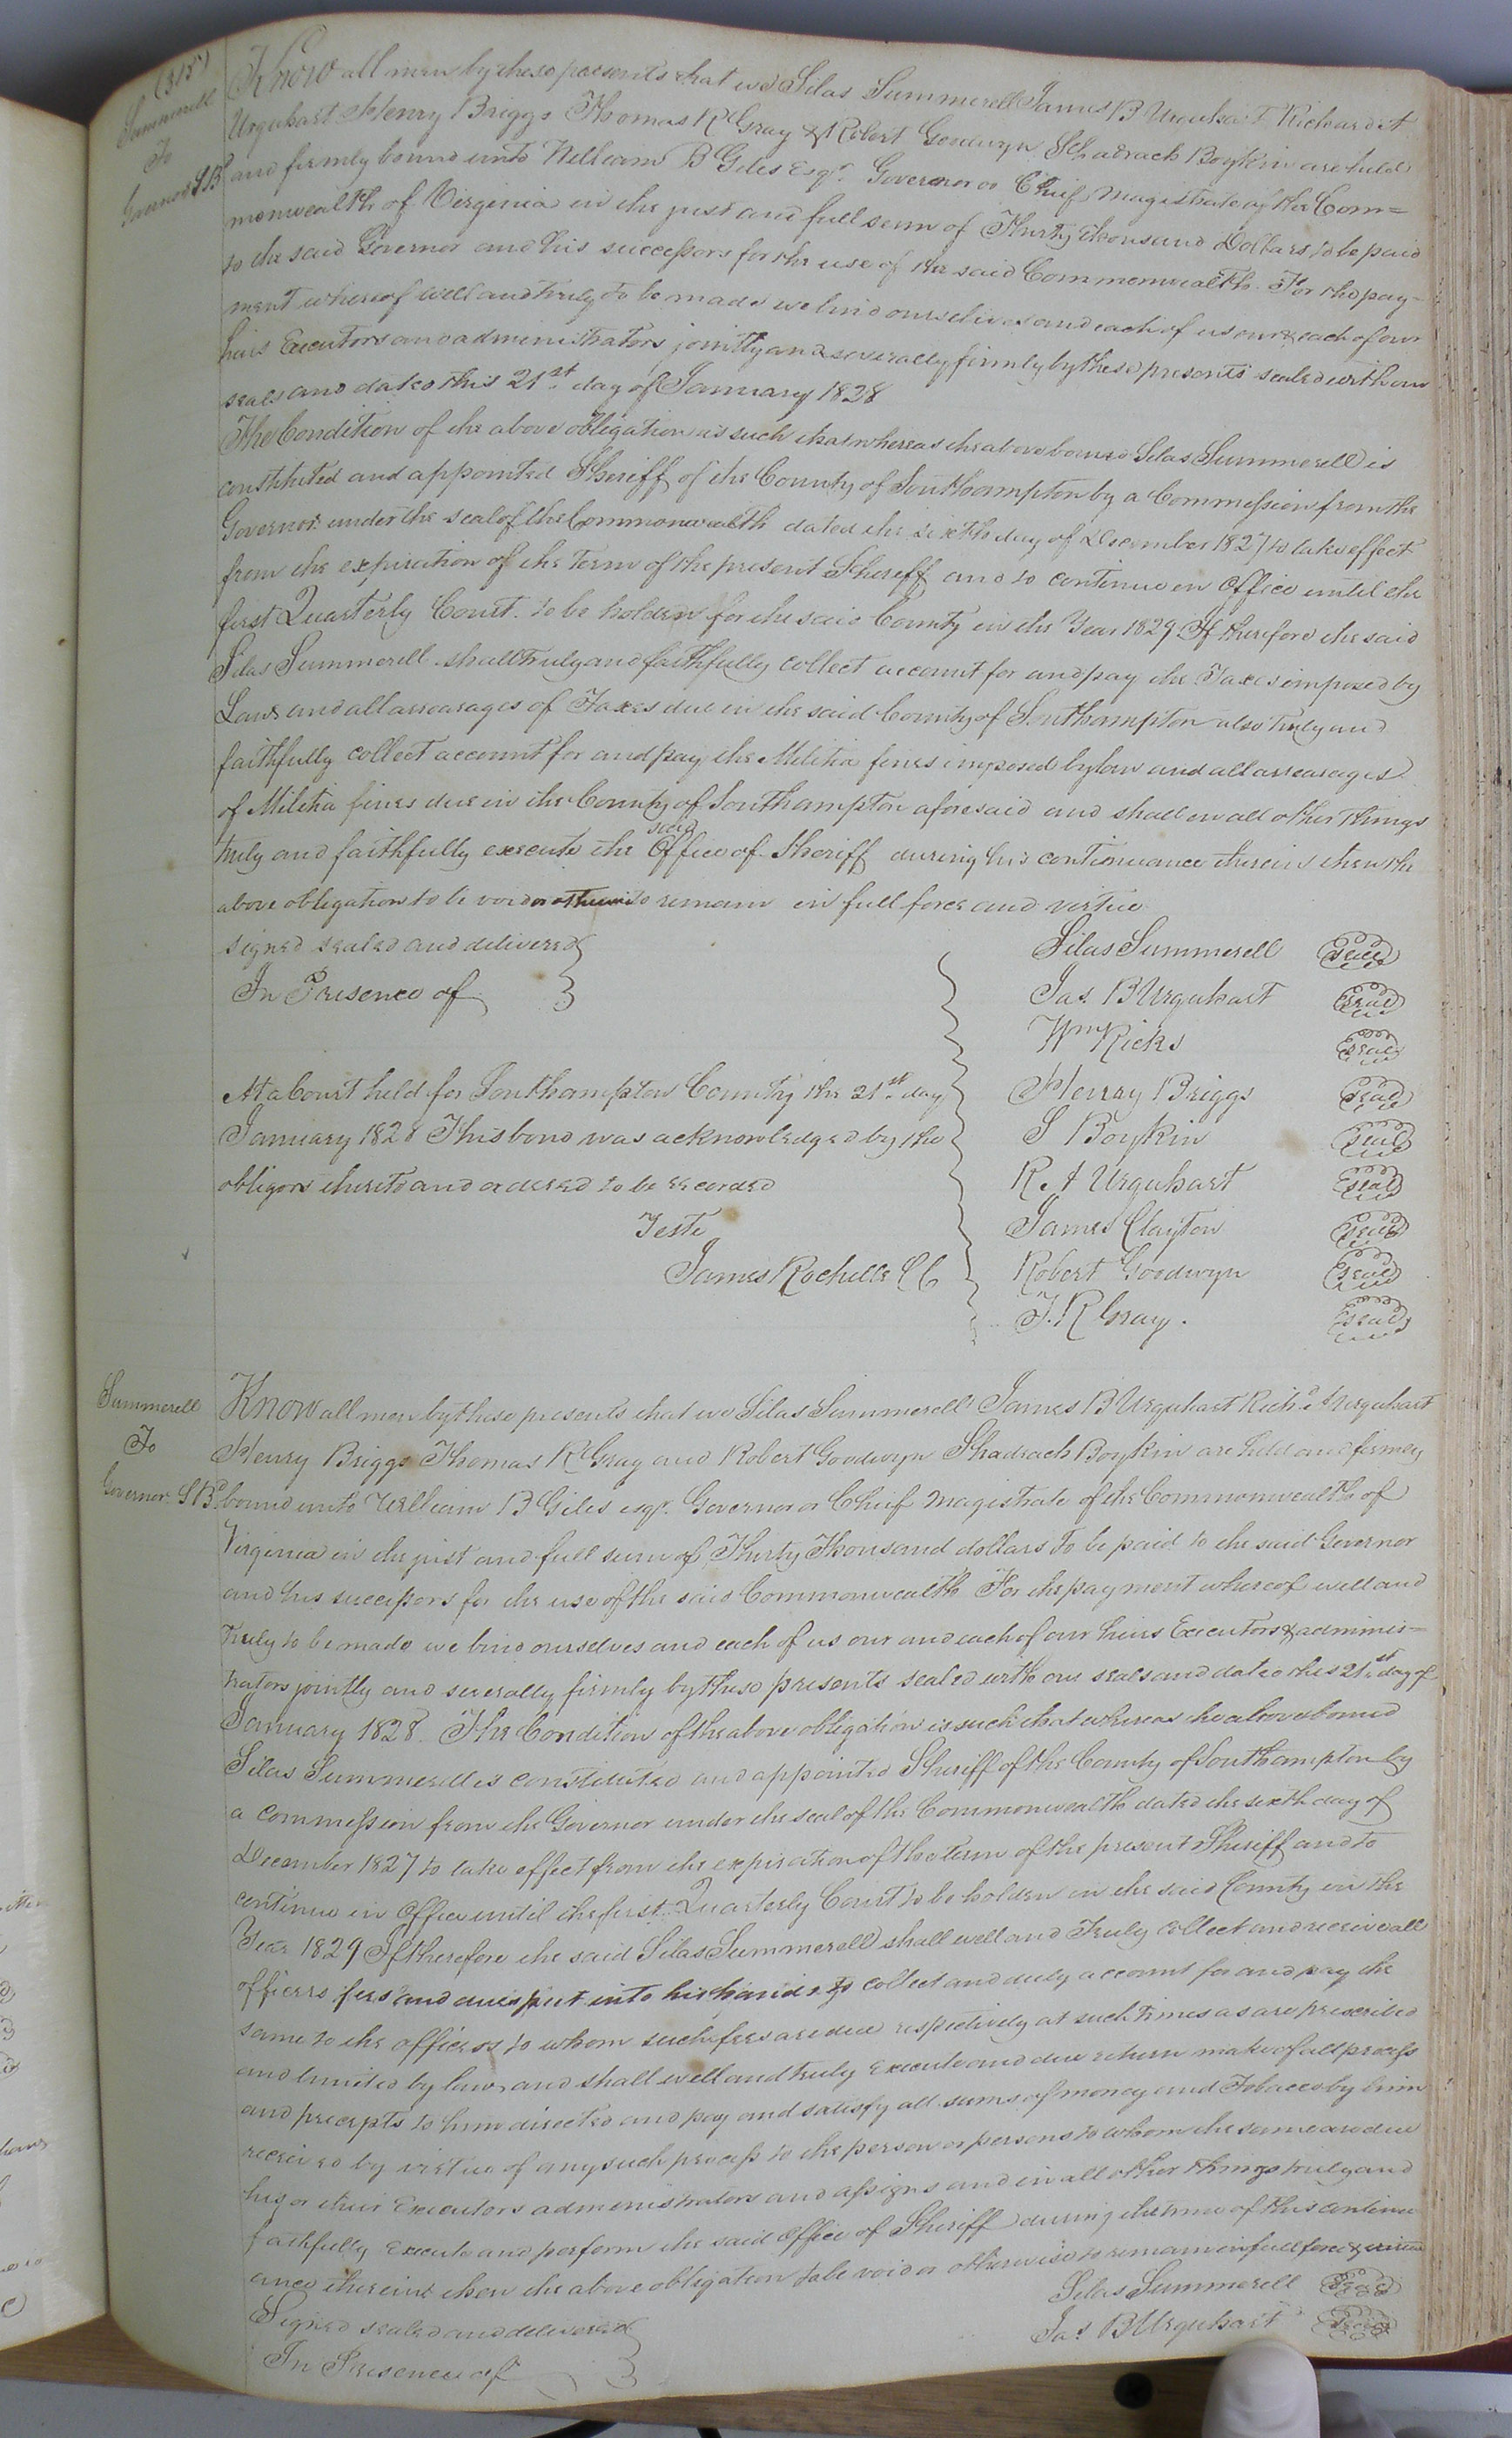 (315)
Summerell
To
Governor S Bd
Know all men by these presents that we Silas Summerell James B Urquhart Richard A
Urquhart Henry Briggs Thomas R Gray & Robert Goodwyn Shadrach Boykin are held
and firmly bound unto William B Giles Esqr. Governor or Chief Magistrate of the Com=
monwealth of Virginia in the just and full sum of Thirty thousand Dollars to be paid
to the said Governor and his successors for the use of the said Commonwealth. For the pay-
ment whereof well and truly to be made we bind ourselves and each of us our & each of our
heirs Executors and administrators jointly and severally firmly by these presents sealed with our
seals and dated this 21st day of January 1828
The Condition of the above obligation is such that whereas the above bound Silas Summerell is
constituted and appointed Sheriff of the County of Southampton by a Commission from the
Governor under the seal of the Commonwealth dated the sixth day of December 1827 to take effect
from the expiration of the term of the present Sheriff and to continue in Office until the
first Quarterly Court to be holden for the said County in the Year 1829 If therefore the said
Silas Summerell shall truly and faithfully collect account for and pay the Taxes imposed by
Law and all arrearages of Taxes due in the said County of Southampton also truly and
faithfully collect account for and pay the Militia fines imposed by law and all arrearages
of Militia fines due in the County of Southampton aforesaid and shall in all other things
said
truly and faithfully execute the Office of Sheriff during his continuance therein then the
above obligation to be void or otherwise to remain in full force and virtue
Signed sealed and delivered
In Presence of
Silas Summerell seal
Jas. B Urquhart seal
Wm Ricks seal
Henry Briggs seal
S Boykin seal
R. A Urquhart seal
James Clayton seal
Robert Goodwyn seal
T. R Gray. seal
At a Court held for Southampton County the 21st day
January 1828 This bond was acknowledged by the
obligors thereto and ordered to be recorded
Teste
James Rochelle CC
Summerell
To
Governor S Bd
Know all men by these presents that we Silas Summerell James B Urquhart Richd A Urquhart
Henry Briggs Thomas R Gray and Robert Goodwyn Shadrach Boykin are held and firmly
bound unto William B Giles esqr. Governor or Chief Magistrate of the Commonwealth of
Virginia in the just and full sum of Thirty Thousand dollars to be paid to the said Governor
and his successors for the use of the said Commonwealth For the payment whereof well and
truly to be made we bind ourselves and each of us our and each of our heirs Executors & adminis=
trators jointly and severally firmly by these presents sealed with our seals and dated this 21st day of
January 1828. The Condition of the above obligation is such that whereas the above bound
Silas Summerell is constituted and appointed Sheriff of the County of Southampton by
a commission from the Governor under the seal of the Commonwealth dated the sixth day of
December 1827 to take effect from the expiration of the term of the present Sheriff and to
continue in Office until the first Quarterly Court to be holden in the said County in the
Year 1829 If therefore the said Silas Summerell shall well and Truly collect and receive all
officers fees and dues put into his hands to collect and duly account for and pay the
same to the officers to whom such fees are due respectively at such times as are prescribed
and limited by law, and shall well and truly Execute and due return make of all process
and precepts to him directed and pay and satisfy all sums of money and Tobacco by him
received by virtue of any such process to the person or persons to whom the same are due
his or their Executors administrators and assigns and in all other things truly and
faithfully Execute and perform the said Office of Sheriff during the time of this continu
ance therein then the above obligation to be void or otherwise to remain in full force & virtue
Signed sealed and delivered
In Presence of
Silas Summerell seal
Jas B Urquhart seal